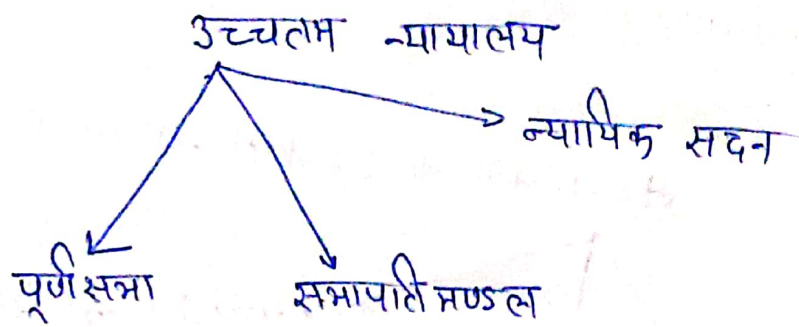 उच्चतम न्यायालय
न्यायिक सदन
पूर्ण सभा
सभापति मण्डल